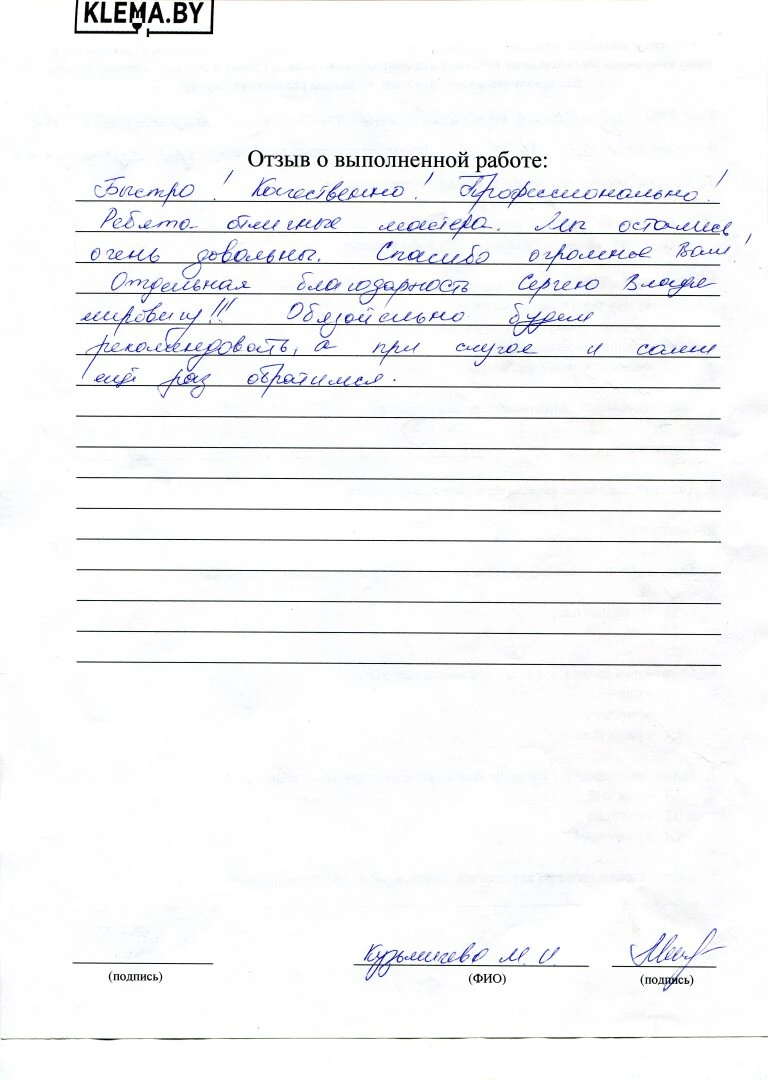 KLEMA.BY
Отзыв о выполненной работе:
Быстро! Качественно! Профессионально!
Ребята отличные мастера. Мы остались
очень довольны. Спасибо огромное Вам!
Отдельная благодарность Сергею Влади
мировичу!!! Обязательно будем
рекомендовать, а при случае и сами
ещё раз обратимся.
Кузьмичёва М. И.
(подпись) (ФИО) (подпись)